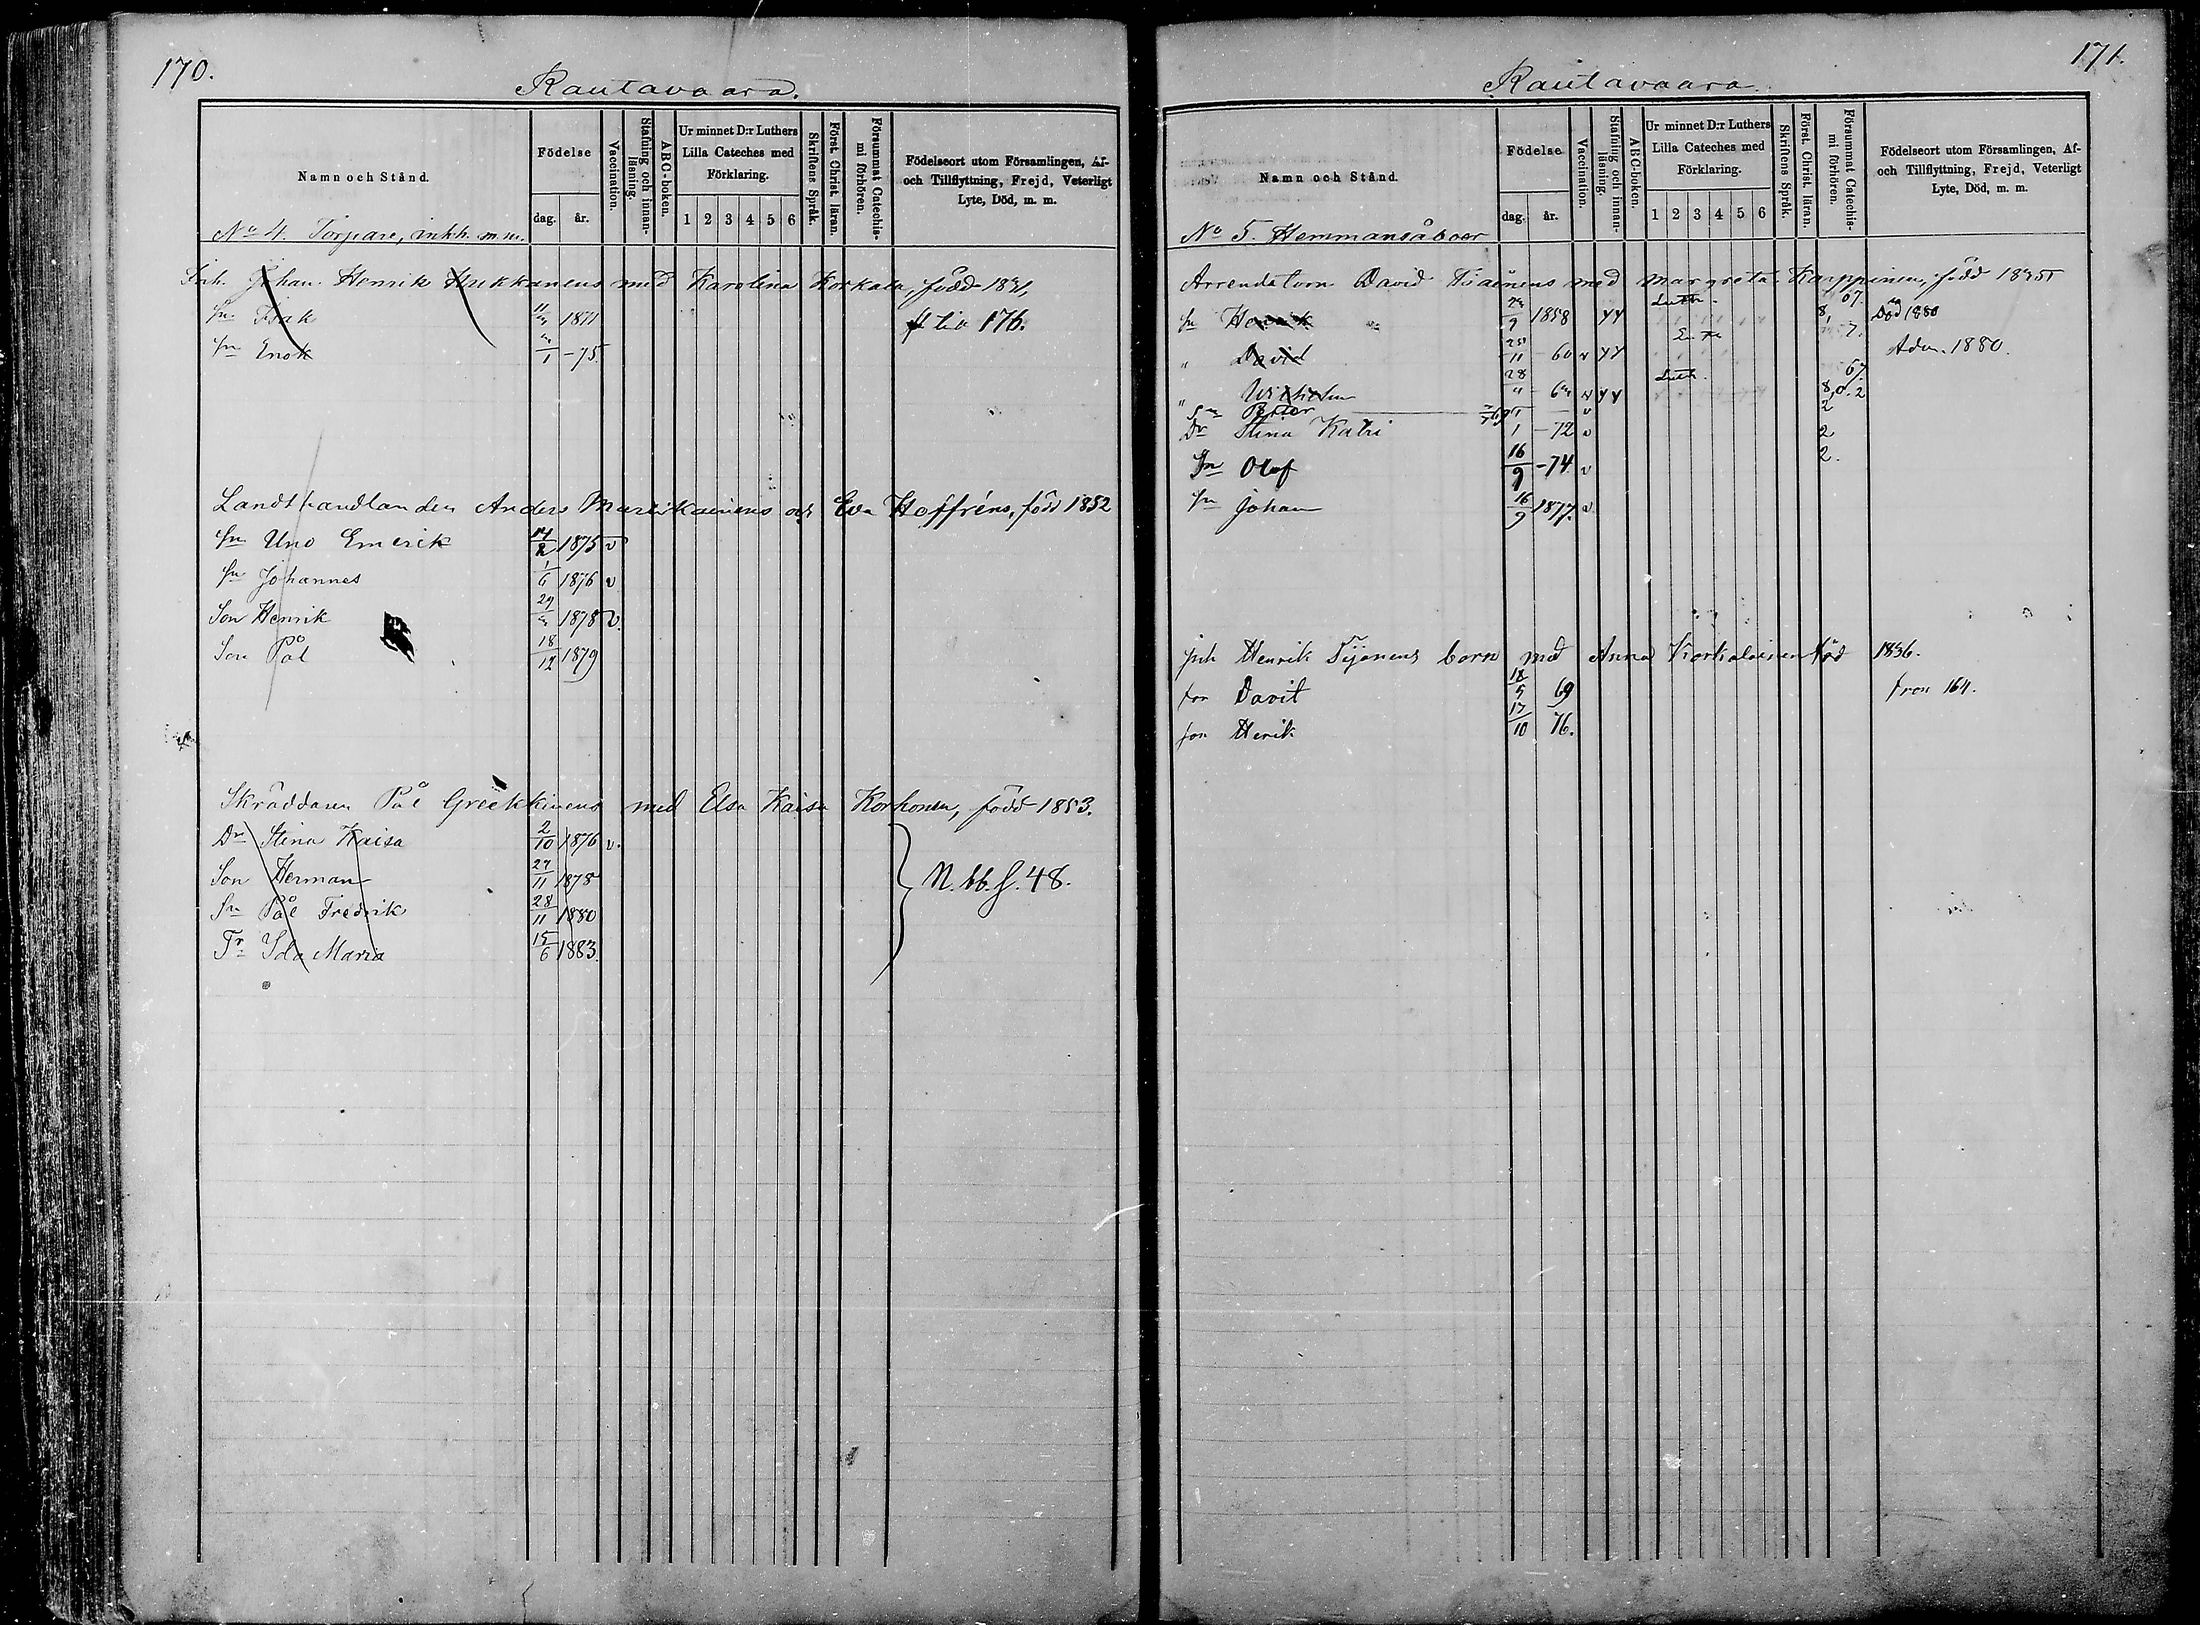 170.
Rautavaara.
Namn och Stånd.
Födelse
dag. år.
Vaccination.
Stafning och innanläsning.
ABC-boken.
Ur minnet D:r Luthers Lilla Cateches med Förklaring.
1 2 3 4 5 6
Skriftens Språk.
Först. Christ. läran.
Försummat Catechismi förhören.
Födelseort utom Församlingen, Af- och Tillflyttning, Frejd, Veterligt Lyte, Död, m. m.
No 4. Torpare, inhh. m.m.
Inh. Johan Henrik Hukkanens med Karolina Korkala, född 1831,
Sn Isak 1871 til 176.
Sn Enok 1 -75.
Landthandlanden Anders Eva Hoffréns, född 1852
Sn Uno Emerik 14/2 1875 v
Sn Johannes 1/6 1876 v
Son Henrik 29 1878 v.
Son Pål 18/12 1879
Skräddaren Pål Greekkinens med Elsa Kaisa Korhonen, född 1853.
Dr Stina Kaisa 2/10 1876 v.
Son Herman 27/11 1878
Sn Pål Fredrik 28/11 1880
Tr Ida Maria 15/6 1883.
N. bb. f. 48.
171.
Rautavaara
Namn och Stånd.
Födelse
dag. år.
Vaccination.
Stafning och innanläsning.
ABC-boken.
Ur minnet D:r Luthers Lilla Cateches med Förklaring.
1 2 3 4 5 6
Skriftens Språk.
Först. Christ. läran.
Försummat Catechismi förhören.
Födelseort utom Församlingen, Af- och Tillflyttning, Frejd, Veterligt Lyte, Död, m. m.
No 5. Hemmansåboer
Arrendatorn David med Margreta Karppinen, född 1835
Sn Henrik 1858 Död 1880
" David 25/11 60 Adm. 1880.
" Wilhelm 28
Sn Petter 2
Dr Stina Katri 1 -72 v 2
Sn Olof 16/9 -74 v 2.
Sn Johan 16/9 1877. v
Inh Henrik Tijonens born med Anna Korkalainen föd 1836.
son Davit 18 69 fron 164.
son Henrik 17/10 76.